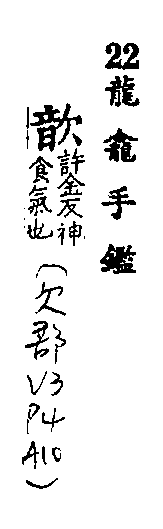 22龍龕手鑑
歆許金反神食氣也(欠部V3P4A10)